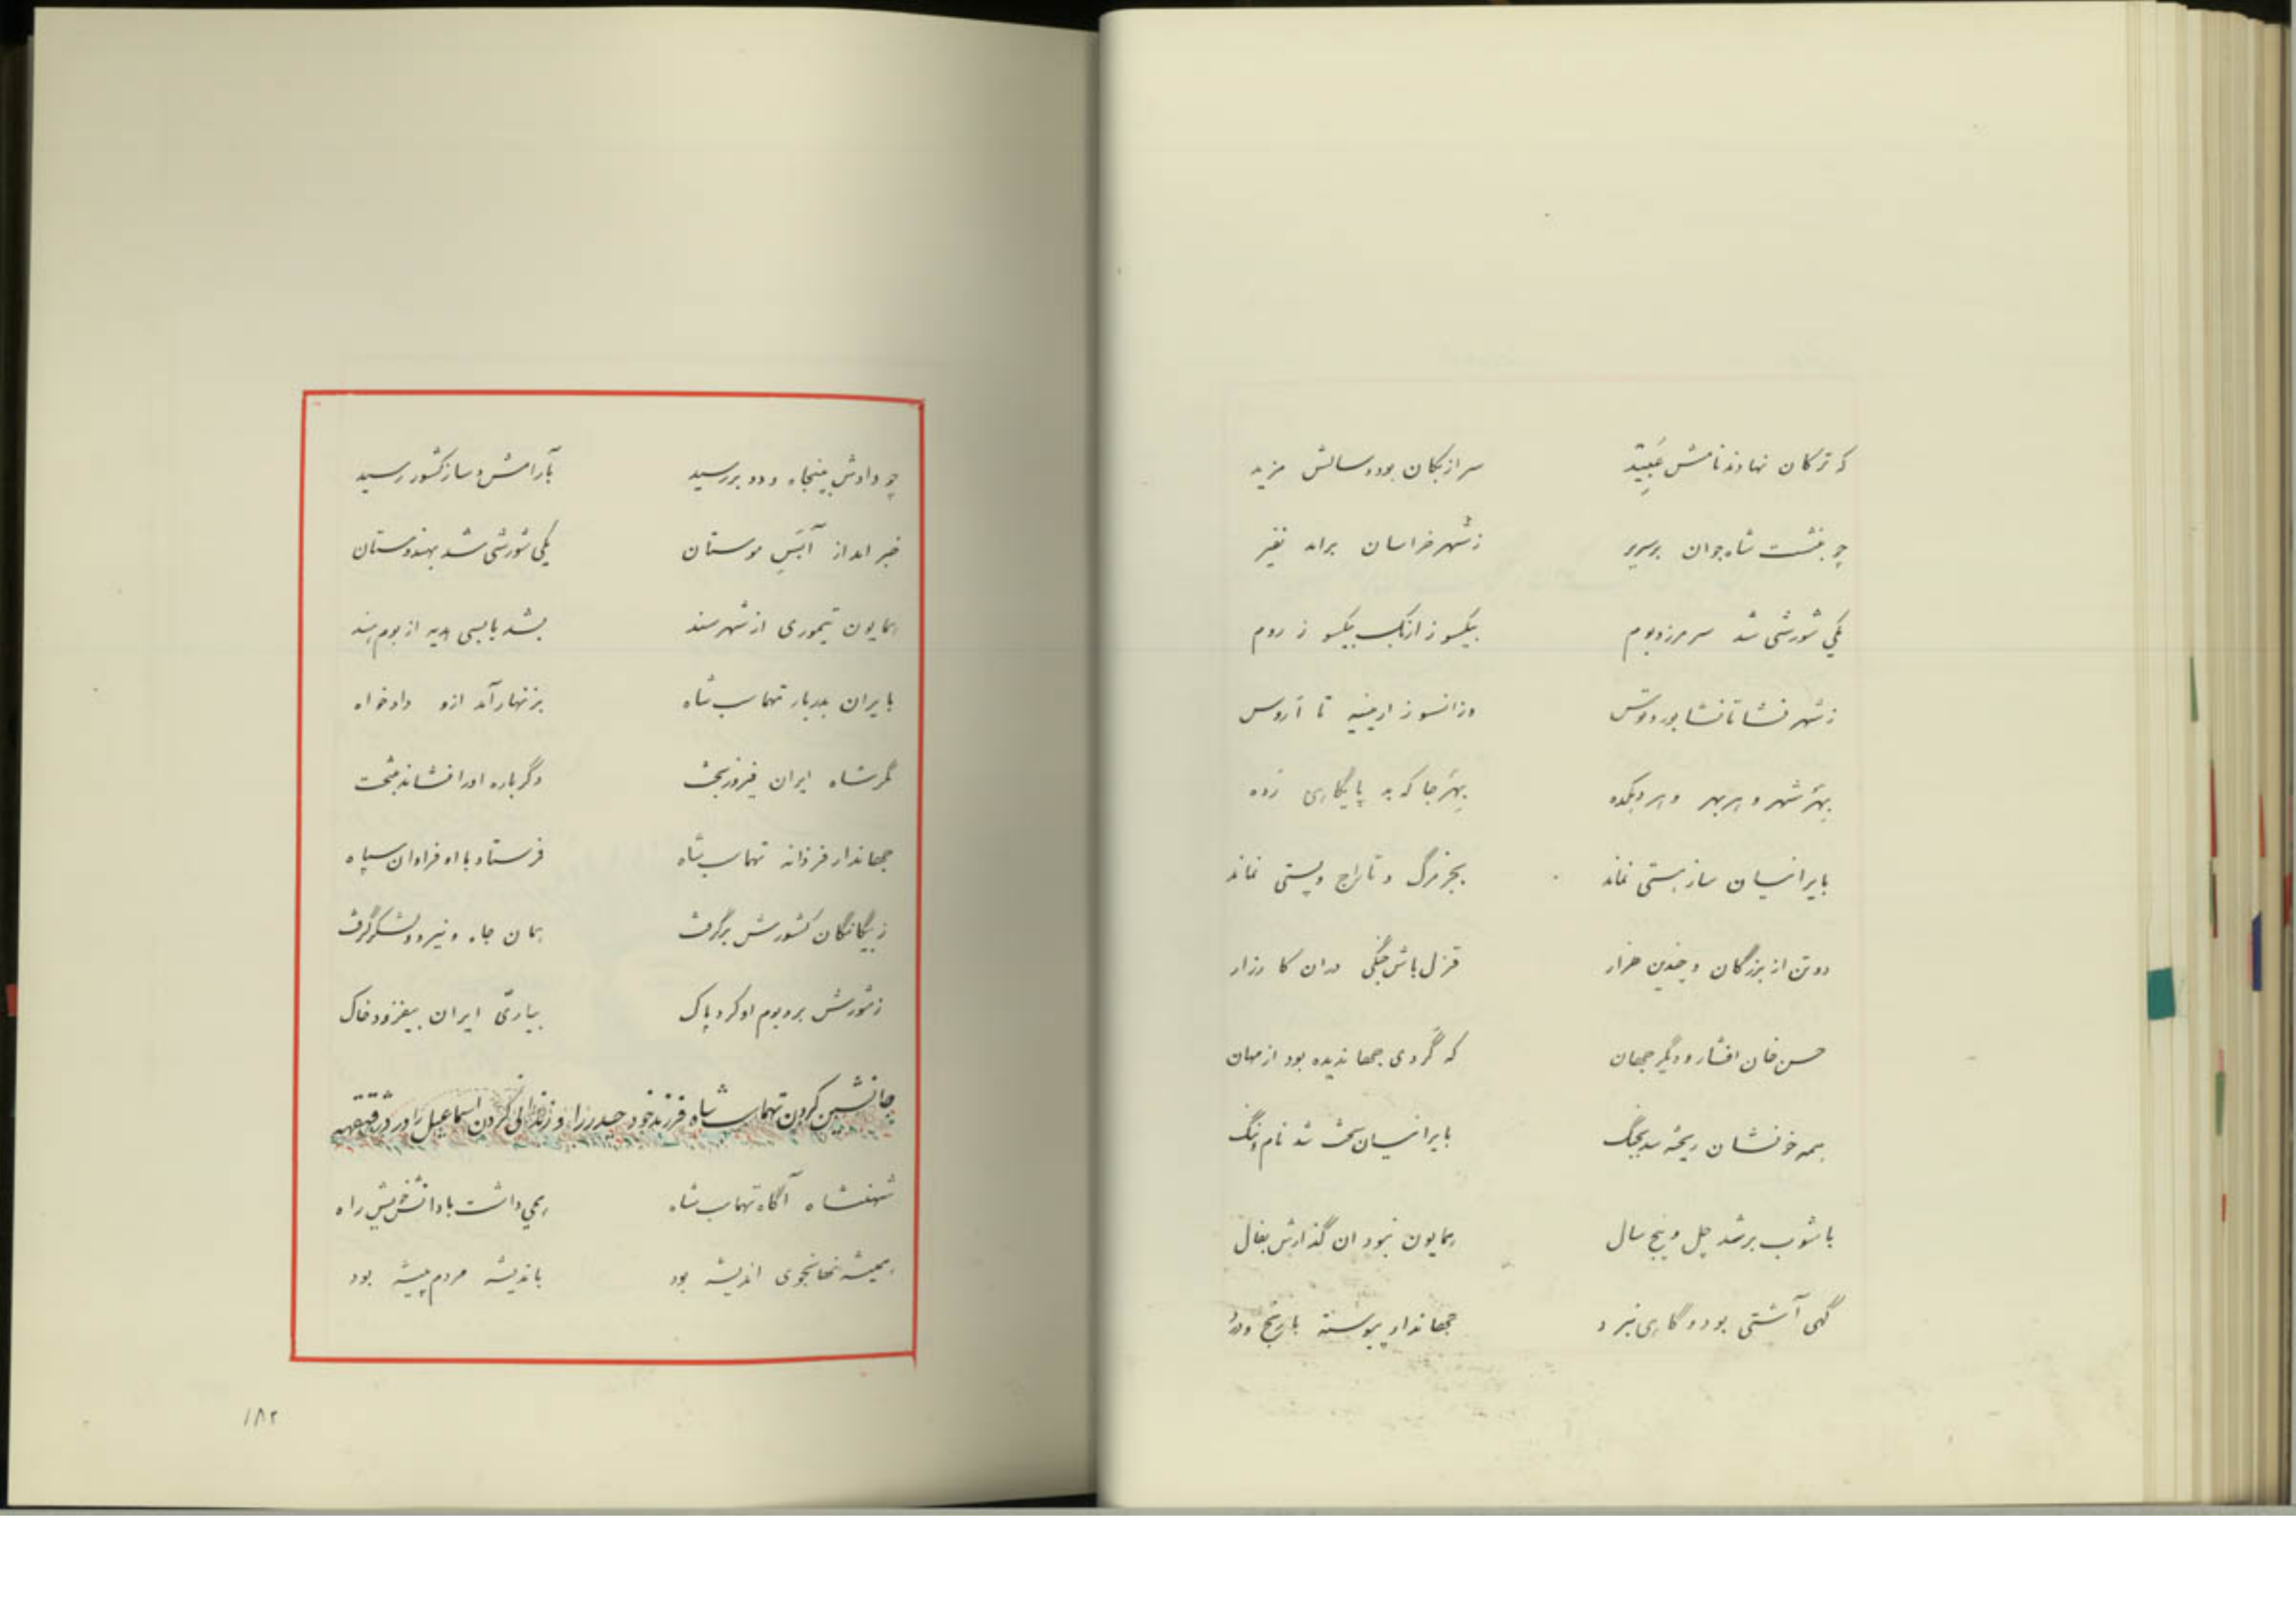 که ترکان نهادند نامش عبید سر ازبکان بود و سالش مزید
چو بنشست شاه جوان بر سریر ز شهر خراسان برامد نفیر
یکی شورشی شد سر مرز و بوم بیکسو ز ازبک بیکسو ز روم
ز شهر نسا تا نشابور و توس وزانسو ز ارمنیه تا اروس
بهر شهر و هر بهر و هر دهکده بهر جا که بد پایگاهی زده
بایرانیان ساز هستی نماند بجز مرگ و تاراج و پستی نماند
دو تن از بزرگان و چندین هزار قزل باش جنگی دران کارزار
حسن خان افشار و دیگر جهان که گردی جهاندیده بود از مهان
همه خونشان ریخته شد بجنگ بایرانیان سخت شد نام و ننگ
باشوب بر شد چل و پنج سال همایون نبود ان گذارش بفال
گهی آشتی بود و گاهی نبرد جهاندار پیوسته با رنج و درد
چو دادش بپنجاه و دو بر رسید بآرامش و ساز کشور رسید
خبر امد از آبس موستان یکی شورشی شد بهندوستان
همایون تیموری از شهر سند بشد با بسی هدیه از بوم هند
بایران بدربار تهماسب شاه بزنهار آمد ازو دادخواه
مگر شاه ایران فیروزبخت دگرباره او را نشاند بتخت
جهاندار فرزانه تهماسب شاه فرستاد با او فراوان سپاه
ز بیگانگان کشورش برگرفت همان جاه و نیرو و لشکر گرفت
ز شورش بر و بوم او کرد پاک بیاری ایران بیفزود خاک
جانشین کردن تهماسب شاه فرزند خود حیدر را و زندانی کردن اسماعیل را در دژ قهقهه
شهنشاه آگاه تهماسب شاه همی داشت با دانش خویش راه
همیشه نهانجوی اندیشه بود باندیشه مردم پیشه بود
۱۸۲